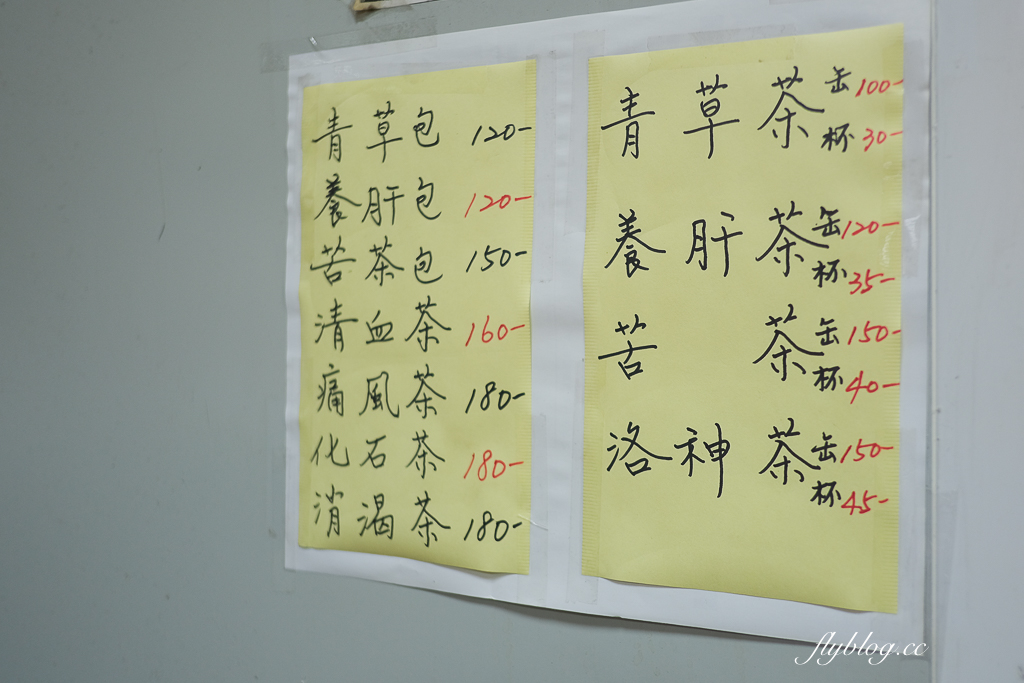 青草包 120-
養肝包 120-
苦茶包 150-
清血茶 160-
痛風茶 180-
化石茶 180-
消渴茶 180-
青草茶 缶 100-
杯 30-
養肝茶 缶 120-
杯 35-
苦 茶 缶 150-
杯 40-
洛神茶 缶 150-
杯 45-
flyblog.cc